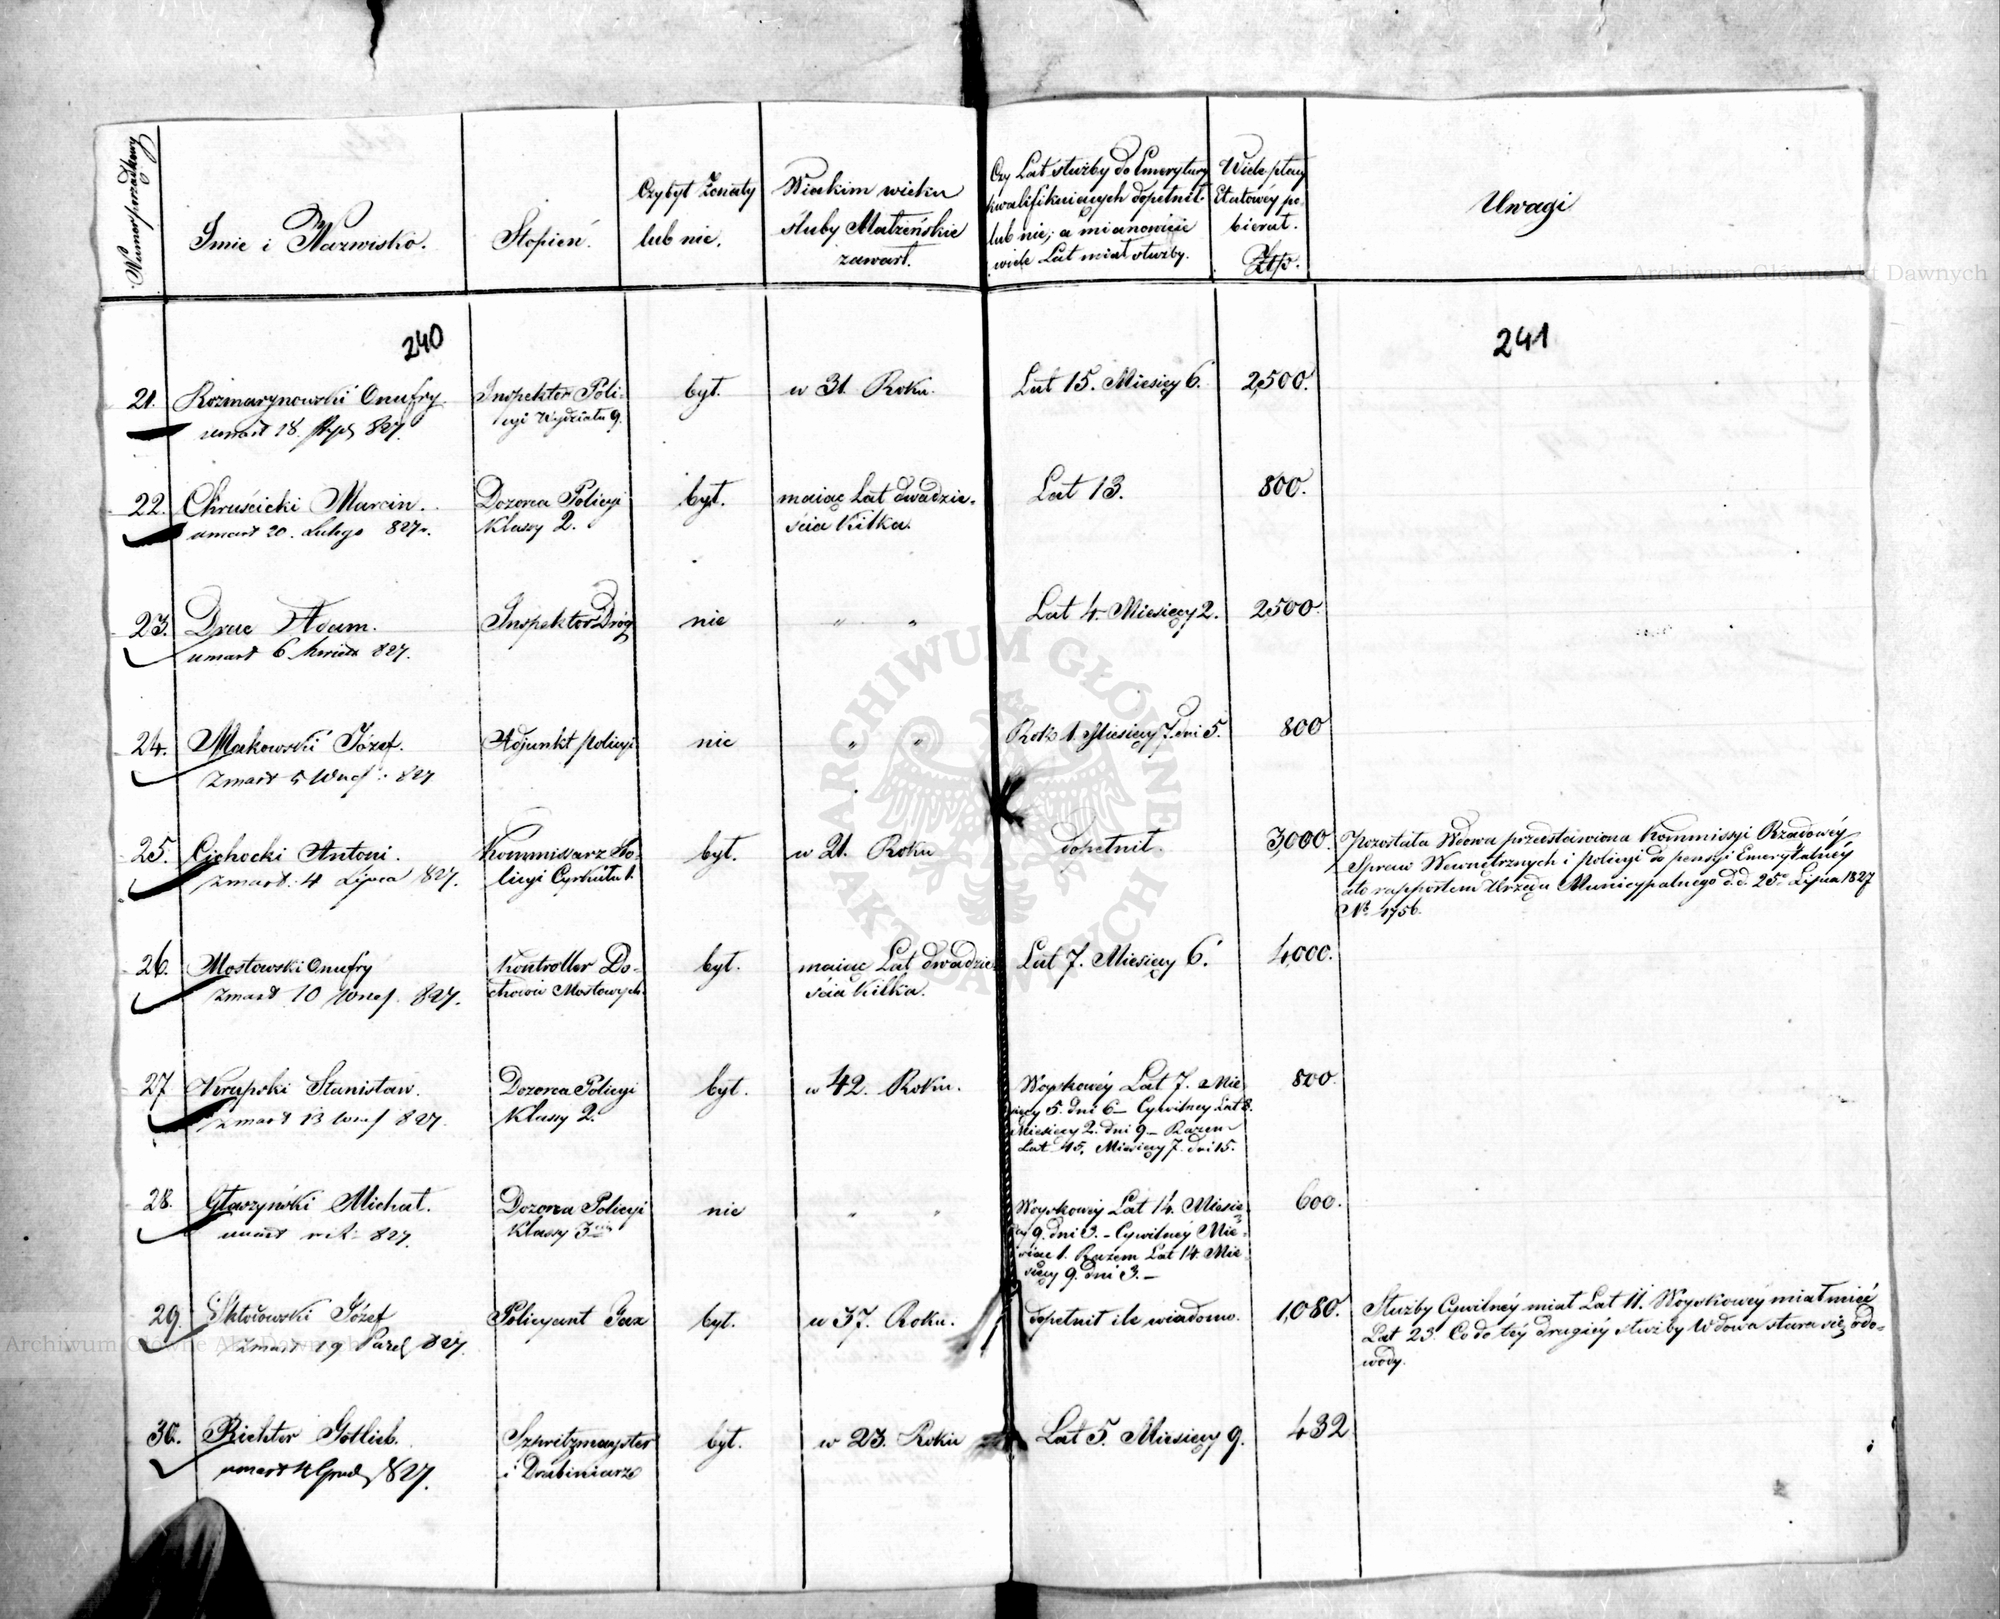 Numer porządkowy
Imie i Nazwisko.
Stopień.
Czy był Żonaty
lub nie.
W iakim wieku
śluby Małżeńskie
zawarł.
Czy Lat służby do Emerytury
kwalifikuiących dopełnił
lub nie; a mianowicie
wiele Lat miał służby.
Wiele płacy
Etatowéy po-
bierał.
Złp.
Uwagi
240
241
21. Rozmarynowski Onufry
umarł 18. 827.
Inspektor Poli-
cyi Wydziału 9.
był.
w 31. Roku.
Lat 15. Miesięcy 6.
2,500.
22. Chruścicki Marcin.
umarł 20. Lutego 827 r.
Dozorca Policyi
Klassy 2.
był.
maiąc Lat dwadzie-
ścia kilka.
Lat 13.
800.
23. Druc Adam.
umarł 6 Kwiet 827.
Inspektor Dróg
nie
" "
Lat 4. Miesięcy 2.
2500.
24. Makowski Józef.
Zmarł 5 Wrześ: 827
Adjunkt policyi
nie
" "
Rok 1. Miesięcy 7. dni 5.
800
25. Cichocki Antoni.
Zmarł. 4 Lipca 827.
Kommissarz Po-
licyi Cyrkułu 1.
był.
w 21. Roku
dopełnił.
3,000.
Pozostała Wdowa przedstawiona Kommissyi Rządowéy
Spraw Wewnętrznych i policyi do pensyi Emerytalnéy
rapportem Urzędu Municypalnego d.d. 25. Lipca 1827
No 4756.
26. Mostowski Onufry
Zmarł 10 Wrześ. 827.
Kontroller Do-
chodów Mostowych.
był.
maiąc Lat dwadzie-
ścia kilka.
Lat 7. Miesięcy 6.
4,000.
27 Krupski Stanisław.
Zmarł 13 Wrześ 827.
Dozorca Policyi
Klassy 2.
był.
w 42. Roku.
Woyskowéy Lat 7. Mie-
sięcy 5. dni 6 – Cywilney Lat 8.
Miesięcy 2. dni 9 – Razem
Lat 15, Miesięcy 7. dni 15.
800.
28. Michał.
827.
Dozorca Policyi
Klassy 3ciéy
nie
" "
Woyskowey Lat 14. Miesię-
cy 9. dni 3. – Cywilnéy Mie-
siąc 1. Razem Lat 14. Mie-
sięcy 9. dni 3. –
600.
29. Józef
Zmarł 19 Paźd 827.
Policyant
był.
w 37. Roku.
dopełnił ile wiadomo.
1,080.
Służby Cywilnéy miał Lat 11. Woyskowéy miał mieć
Lat 23. Co do téy drugiéy służby Wdowa stara się o do-
wody.
30. Richter Gotlieb.
umarł 4 Grud 827.
Szpritzmayster
i Drabiniarz
był.
w 23. Roku
Lat 5. Miesięcy 9.
432
Archiwum Główne Akt Dawnych
ARCHIWUM GŁÓWNE AKT DAWNYCH
Archiwum Główne Akt Dawnych